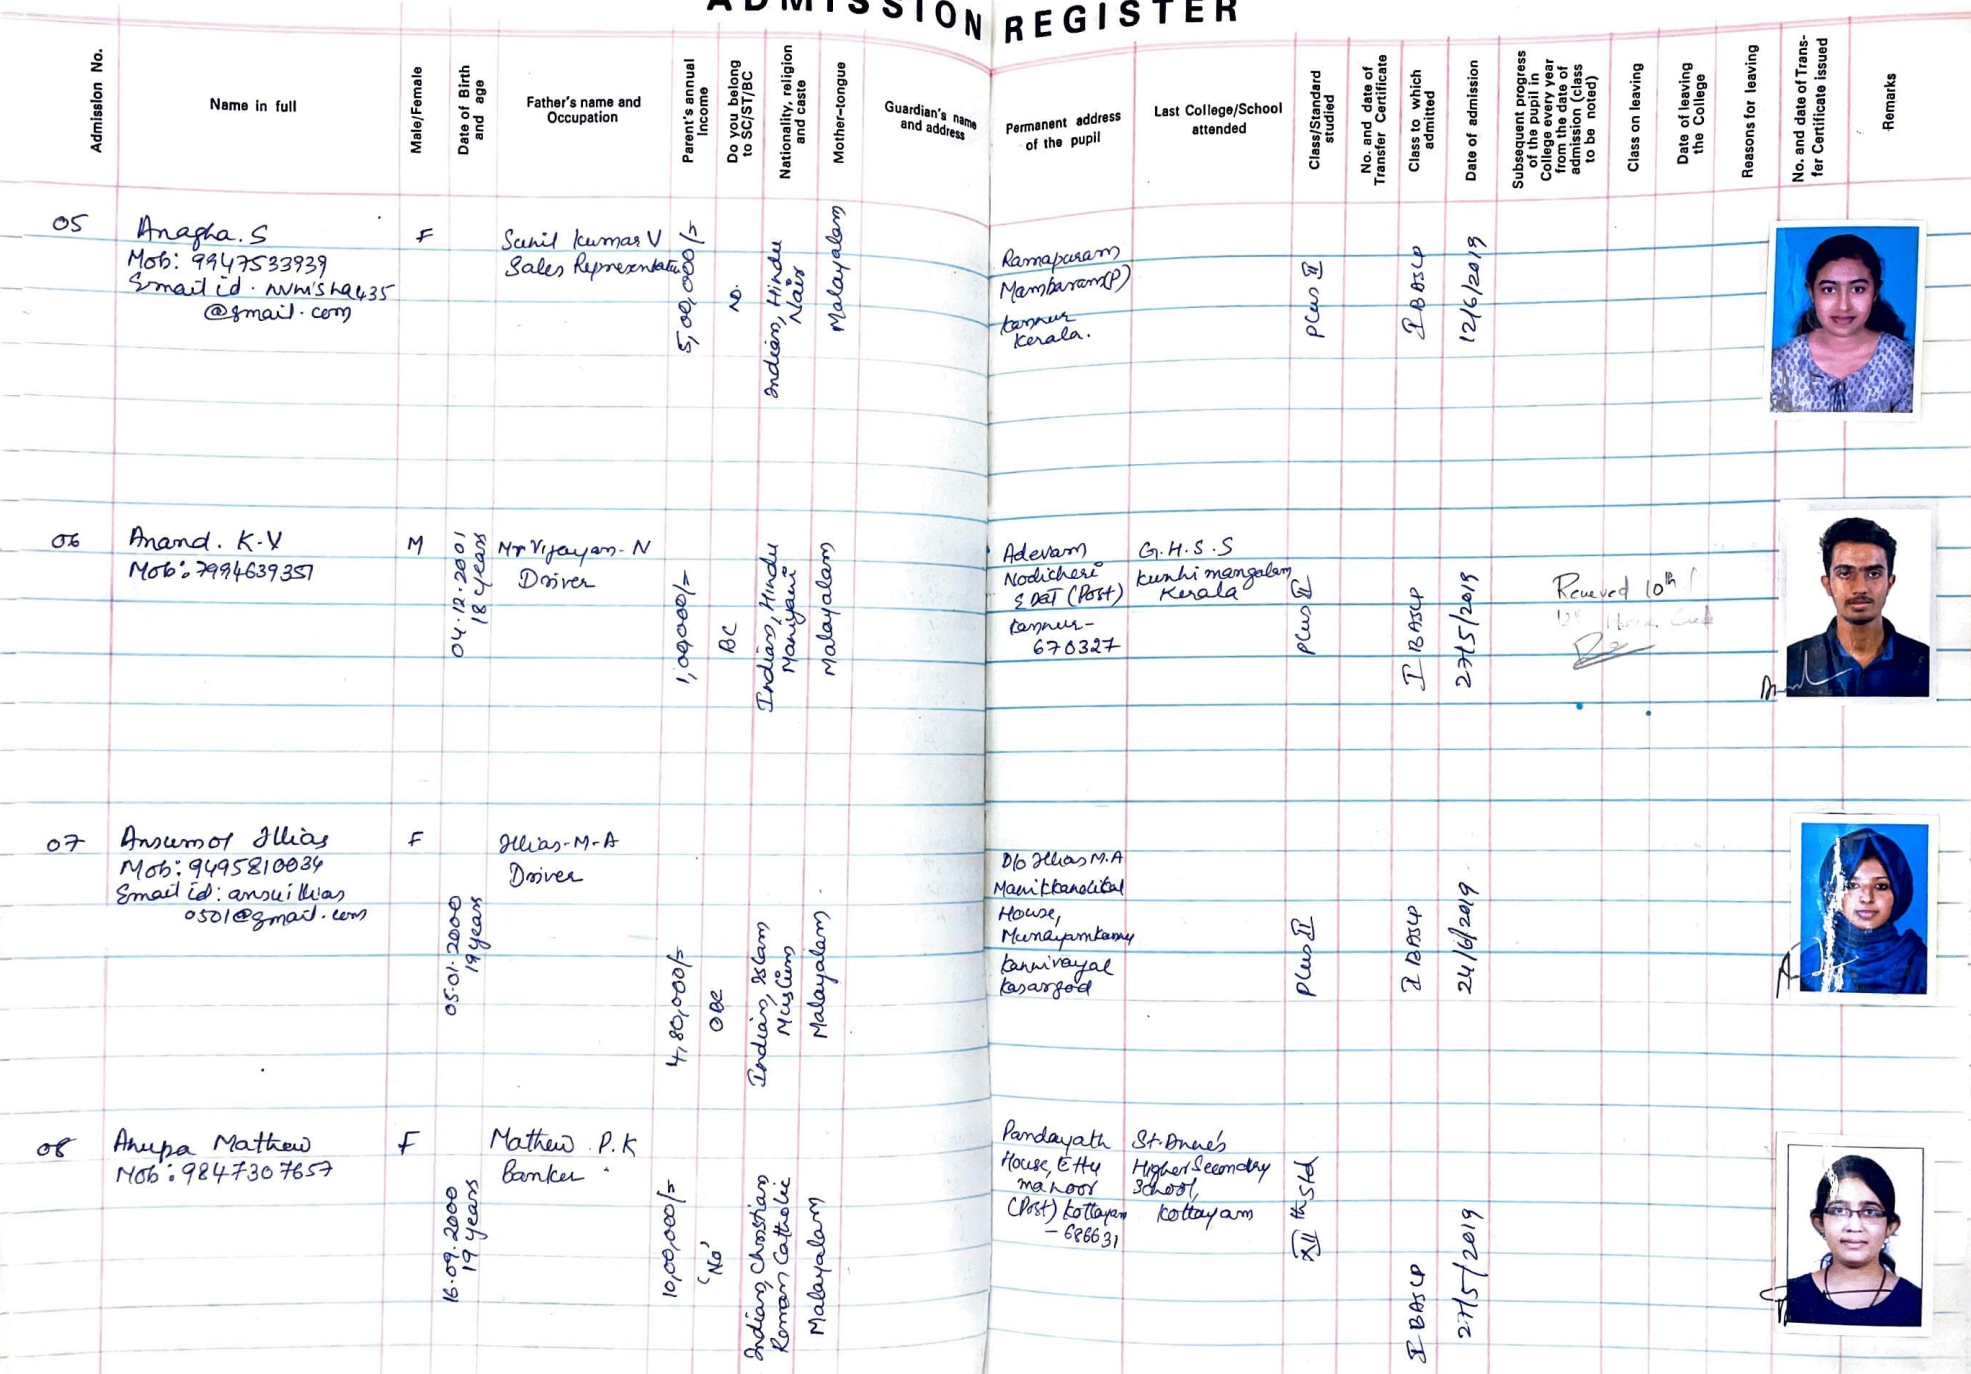 ADMISSION REGISTER
Admission No.
Name in full
Male/Female
Date of Birth
and age
Father's name and
Occupation
Parent's annual
Income
Do you belong
to SC/ST/BC
Nationality, religion
and caste
Mother-tongue
Guardian's name
and address
Permanent address
of the pupil
Last College/School
attended
Class/Standard
studied
No. and date of
Transfer Certificate
Class to which
admitted
Date of admission
Subsequent progress
of the pupil in
College every year
from the date of
admission (class
to be noted)
Class on leaving
Date of leaving
the College
Reasons for leaving
No. and date of Trans-
fer Certificate issued
Remarks
05
Anagha. S
Mob: 9947533939
Email id.
@gmail.com
F
Sunil Kumar V
Sales Representative
5,00,000/=
No.
Indian, Hindu
Nair
Malayalam
Ramapuram
Mambaram(P)
Kannur
Kerala.
Plus II
I BASLP
12/6/2019
06
Anand. K.V
Mob: 7994639351
M
04.12.2001
18 years
Mr Vijayan-N
Driver
1,00,000/=
BC
Indian, Hindu
Maniyani
Malayalam
Adevam
Nodicheri
EDAT (Post)
Kannur-
670327
G.H.S.S
Kunhimangalam
Kerala
Plus II
I BASLP
27/5/2019
Received 10th
07
Ansumol Illias
Mob: 9495810034
Email id: ansuillias
0501@gmail.com
F
05.01.2000
19 years
Illias-M-A
Driver
4,80,000/=
OBC
Indian, Islam
Muslim
Malayalam
D/o Illias M.A
Manikkandikal
House,
Kannivayal
Kasargod
Plus II
I BASLP
24/6/2019
08
Anupa Mathew
Mob: 9847307657
F
16.09.2000
19 years
Mathew P.K
Banker
10,00,000/=
'No'
Indian, Christian
Roman Catholic
Malayalam
Pandayath
House, Ettu
manoor
(Post) Kottayam
- 686631
St. Anne's
Higher Secondary
School,
Kottayam
XII th std
I BASLP
27/5/2019